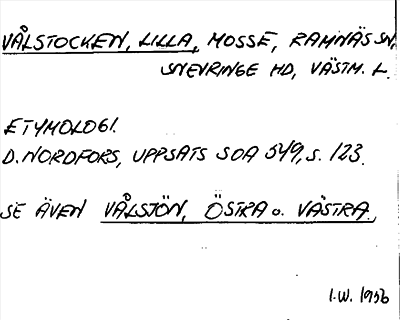 VÅLSTOCKEN, LILLA, MOSSE, RAMNÄS SN,
SNEVRINGE HD, VÄSTM. L.
ETYMOLOGI.
D. NORDFORS, UPPSATS SOA 549, S. 123.
SE ÄVEN VÅLSJÖN, ÖSTRA o. VÄSTRA.
I.W. 1956